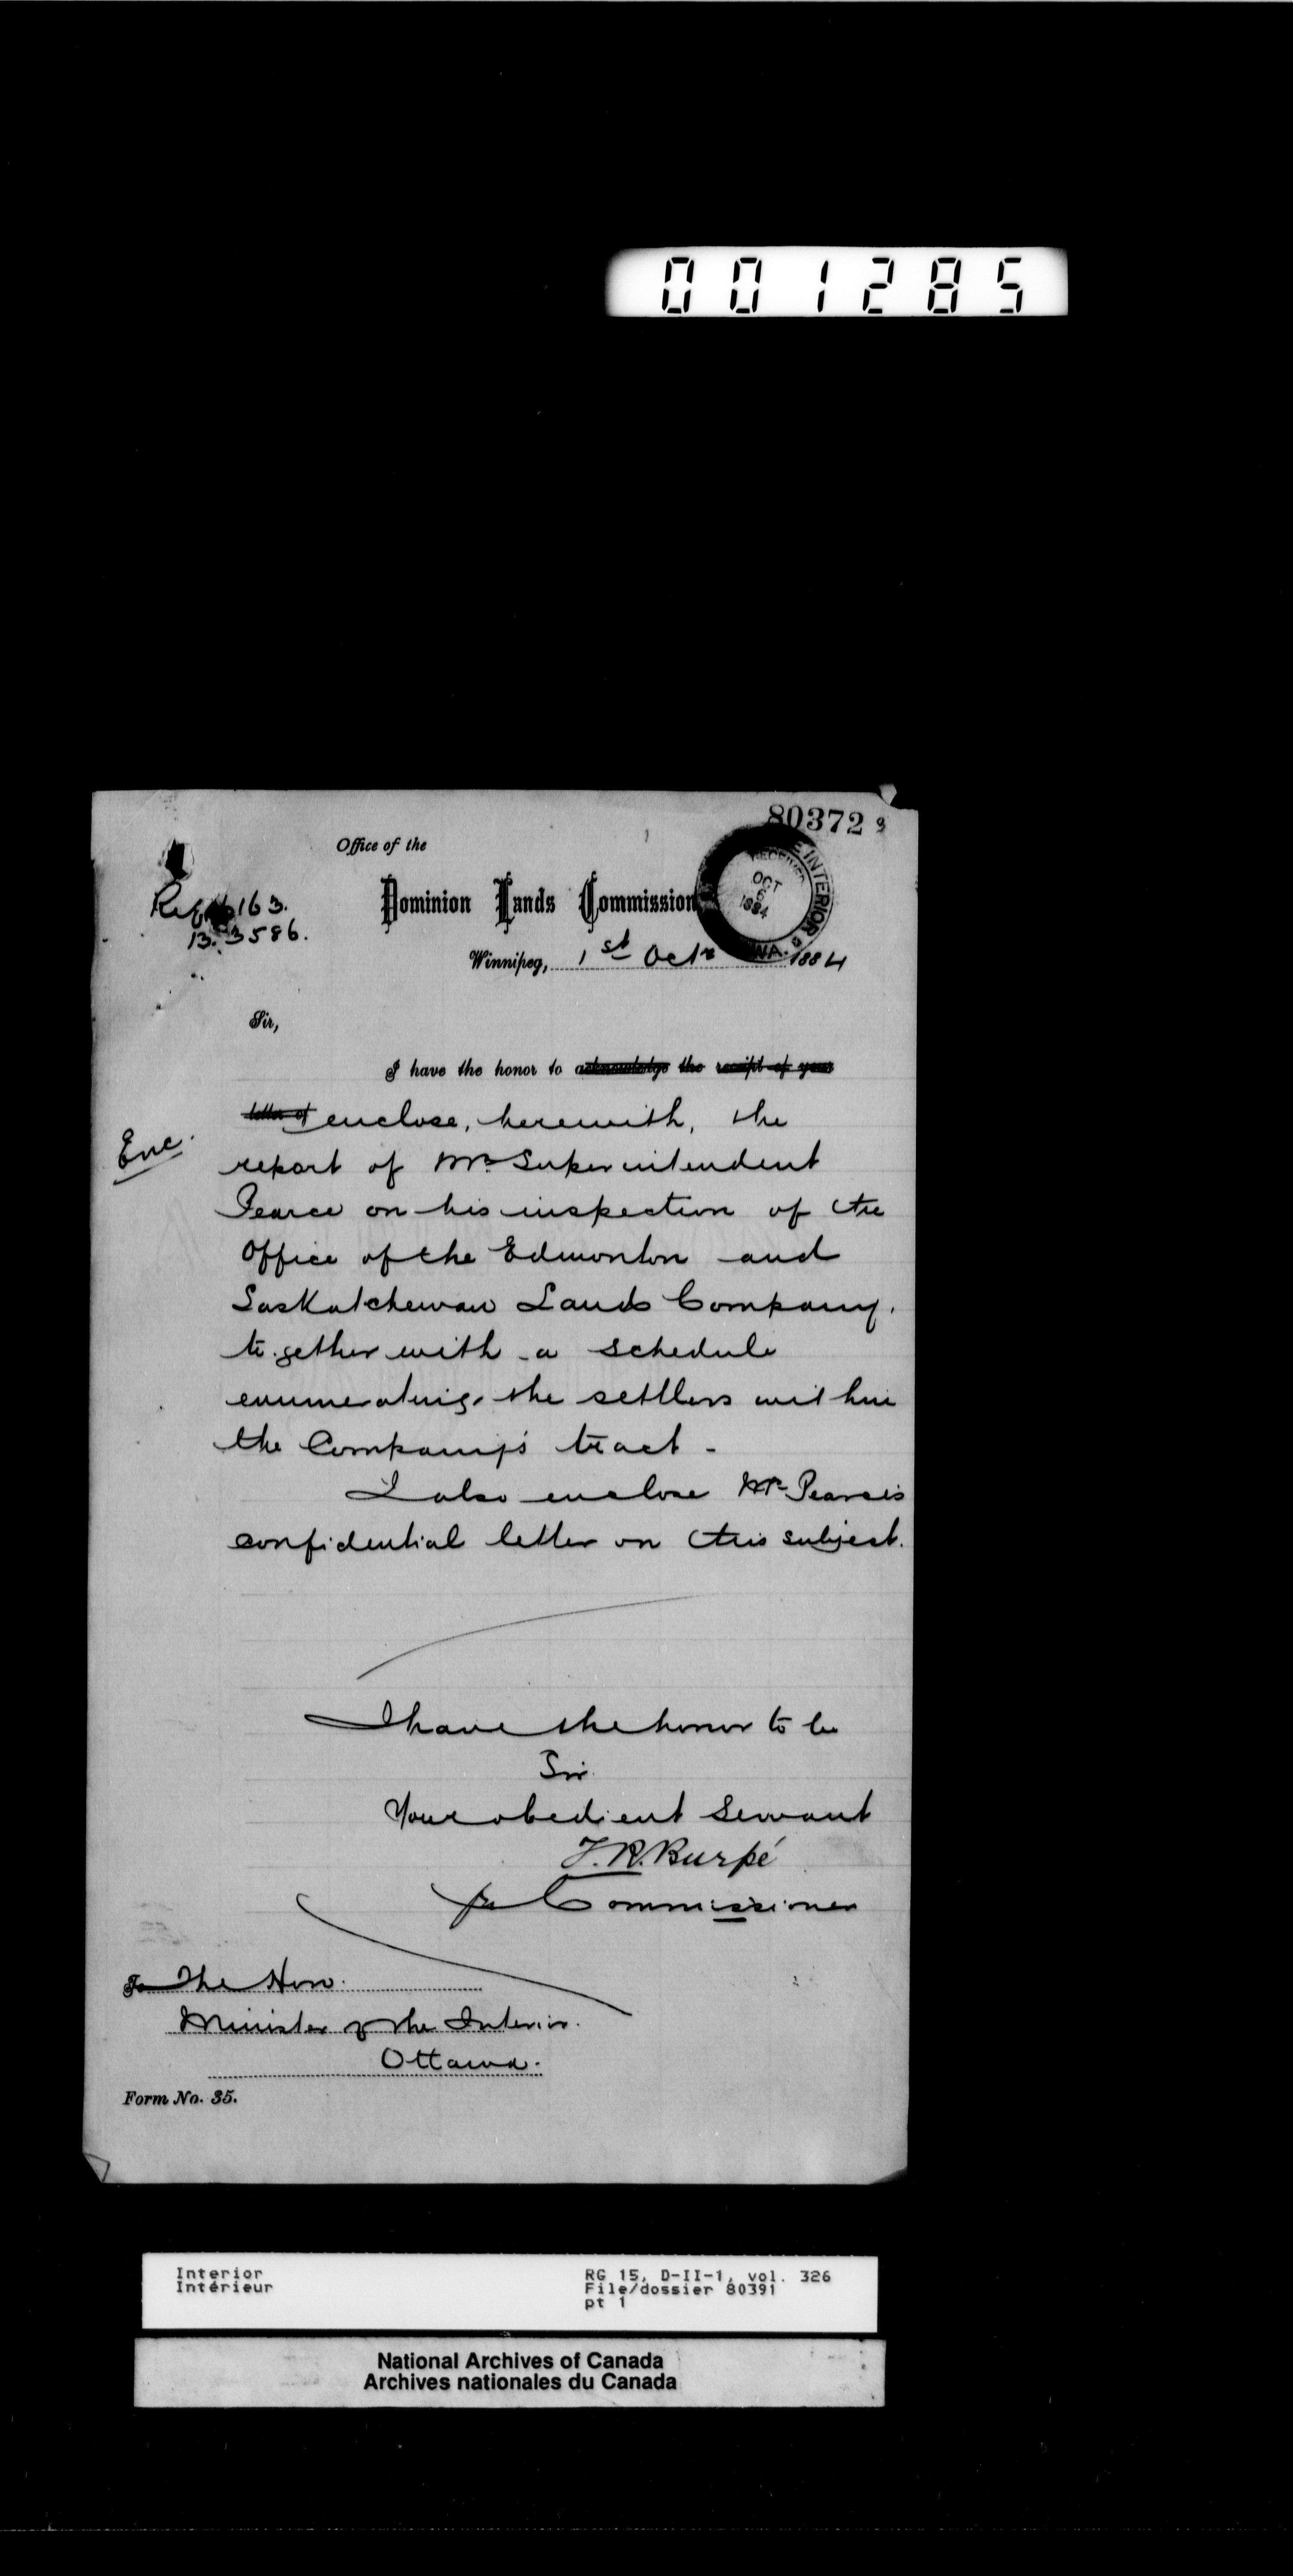 001285
80372
Office of the
Dominion Lands Commission
RECEIVED
OCT
6
1884
E INTERIOR
WA.
163.
13. 3586.
Winnipeg, 1st Octr 1884
Sir,
I have the honor to acknowledge the receipt of your
letter of enclose, herewith, the
Enc.
report of Mr. Superintendent
Pearce on his inspection of the
Office of the Edmonton and
Saskatchewan Lands Company,
together with a schedule
enumerating the settlers within
the Company's tract -
I also enclose Mr Pearce's
confidential letter on this subject.
I have the honor to be
Sir.
Your obedient Servant
F. R. Burpé
for Commissioner
To The Hon.
Minister of the Interior.
Ottawa.
Form No. 35.
Interior
Intérieur
RG 15, D-II-1, vol. 326
File/dossier 80391
pt 1
National Archives of Canada
Archives nationales du Canada